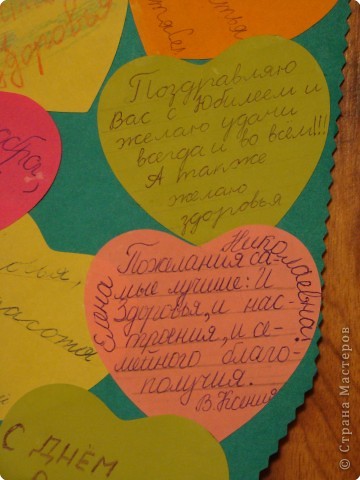 здоровья
Поздравляю
Вас с Юбилеем и
желаю удачи
всегда и во всем!!!
А также
желаю
здоровья
Елена Николаевна!
Пожелания са-
мые лучшие: И
Здоровья, и нас-
троения, и се-
мейного благо-
получия.
В. Ксения
С ДНЁМ
© Страна Мастеров